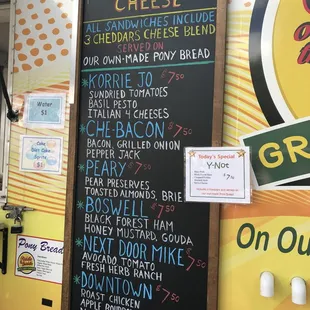 CHEESE
ALL SANDWICHES INCLUDE
3 CHEDDARS CHEESE BLEND
SERVED ON
OUR OWN-MADE PONY BREAD
*KORRIE JO $7.50
SUNDRIED TOMATOES
BASIL PESTO
ITALIAN 4 CHEESES
*CHE-BACON $7.50
BACON, GRILLED ONION
PEPPER JACK
*PEARY $7.50
PEAR PRESERVES
TOASTED ALMONDS, BRIE
*BOSWELL $7.50
BLACK FOREST HAM
HONEY MUSTARD, GOUDA
*NEXT DOOR MIKE $7.50
AVOCADO TOMATO
FRESH HERB RANCH
*DOWNTOWN $7.50
ROAST CHICKEN
APPLE
Water
$1
Coke
Diet Coke
Sprite
$1
Pony Bread
Today's Special
Y-Not
GR
On Ou